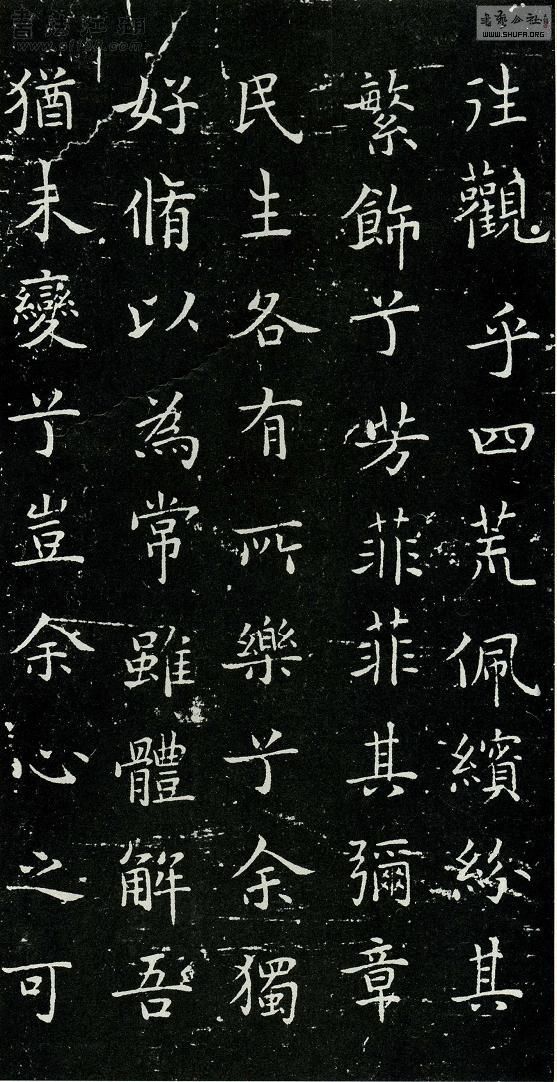 往觀乎四荒佩繽紛其
繁飾兮芳菲菲其彌章
民生各有所樂兮余獨
好脩以為常雖體解吾
猶未變兮豈余心之可
書法江湖
WWW.SHUFA.ORG